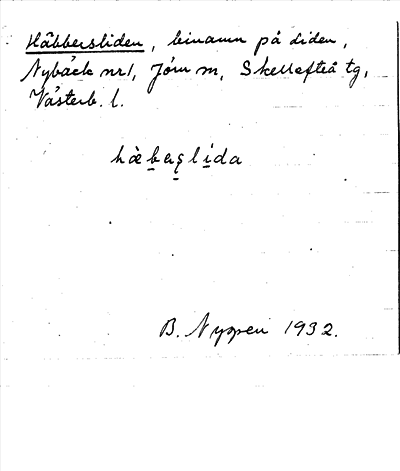 Häbbersliden, binamn på Liden,
Nybäck nr 1, Jörn m, Skellefteå tg,
Västerb. l.
hæ̀bagli̱da
B. Nygren 1932.